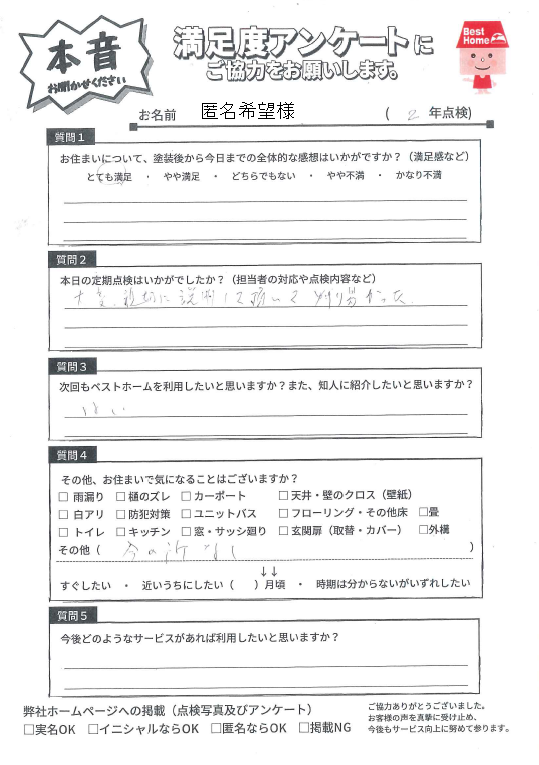 本音
お聞かせください
満足度アンケートに
ご協力をお願いします。
Best Home
お名前 匿名希望様 ( 2 年点検)
質問1
お住まいについて、塗装後から今日までの全体的な感想はいかがですか?(満足感など)
とても満足 ・ やや満足 ・ どちらでもない ・ やや不満 ・ かなり不満
質問2
本日の定期点検はいかがでしたか?(担当者の対応や点検内容など)
大変、親切に説明して頂いて判り易かった。
質問3
次回もベストホームを利用したいと思いますか?また、知人に紹介したいと思いますか?
はい
質問4
その他、お住まいで気になることはございますか?
□ 雨漏り □ 樋のズレ □ カーポート □ 天井・壁のクロス(壁紙)
□ 白アリ □ 防犯対策 □ ユニットバス □ フローリング・その他床 □畳
□ トイレ □ キッチン □ 窓・サッシ廻り □ 玄関扉(取替・カバー) □外構
その他( 今の所なし )
↓↓
すぐしたい ・ 近いうちにしたい( )月頃 ・ 時期は分からないがいずれしたい
質問5
今後どのようなサービスがあれば利用したいと思いますか?
弊社ホームページへの掲載(点検写真及びアンケート)
□実名OK □イニシャルならOK □匿名ならOK □掲載NG
ご協力ありがとうございました。
お客様の声を真摯に受け止め、
今後もサービス向上に努めて参ります。